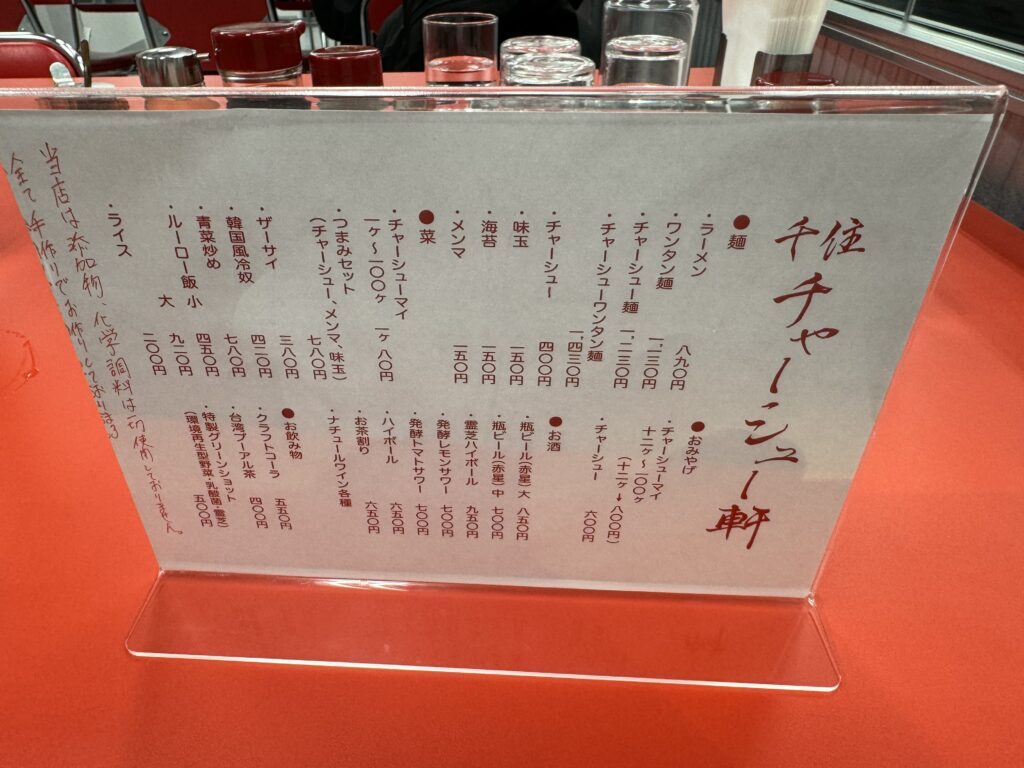 千住 チャーシュー軒
●麺
・ラーメン 八九〇円
・ワンタン麺 一、一三〇円
・チャーシュー麺 一、二三〇円
・チャーシューワンタン麺 一、四三〇円
・チャーシュー 四〇〇円
・味玉 一五〇円
・海苔 一五〇円
・メンマ 一五〇円
●菜
・チャーシューマイ
一ヶ〜一〇〇ヶ 一ヶ 八〇円
・つまみセット
(チャーシュー、メンマ、味玉) 七八〇円
・ザーサイ 三八〇円
・韓国風冷奴 四二〇円
・青菜炒め 七八〇円
・ルーロー飯 小 四五〇円
大 九二〇円
・ライス 二〇〇円
●おみやげ
・チャーシューマイ
十二ヶ〜一〇〇ヶ (十二ヶ→八〇〇円)
・チャーシュー 六〇〇円
●お酒
・瓶ビール(赤星) 大 八五〇円
・瓶ビール(赤星) 中 七〇〇円
・霊芝ハイボール 九五〇円
・発酵レモンサワー 七〇〇円
・発酵トマトサワー 七〇〇円
・ハイボール 六五〇円
・お茶割り 六五〇円
・ナチュールワイン各種
●お飲み物
・クラフトコーラ 五五〇円
・台湾プーアル茶 四〇〇円
・特製グリーンショット 五〇〇円
(環境再生型野菜・乳酸菌・霊芝)
当店は添加物、化学調料は一切使用しておりません。
全て手作りでお作りしております